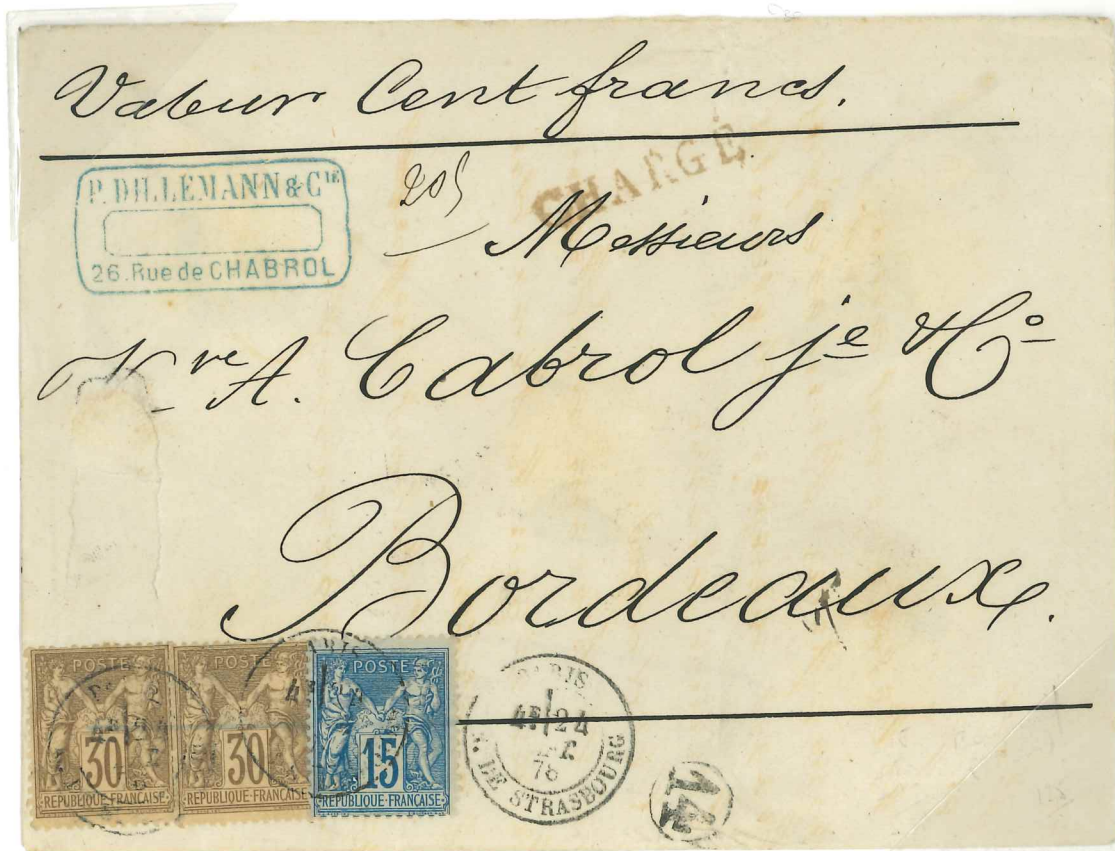 Valeur Cent francs.
P. DILLEMANN & Cie
26. Rue de CHABROL
CHARGÉ
Messieurs
Vve A. Cabrol je & Co
Bordeaux.
POSTE
30
REPUBLIQUE FRANÇAISE
POSTE
30
REPUBLIQUE FRANÇAISE
POSTE
15
REPUBLIQUE FRANÇAISE
PARIS
PARIS
24
78
R. DE STRASBOURG
14